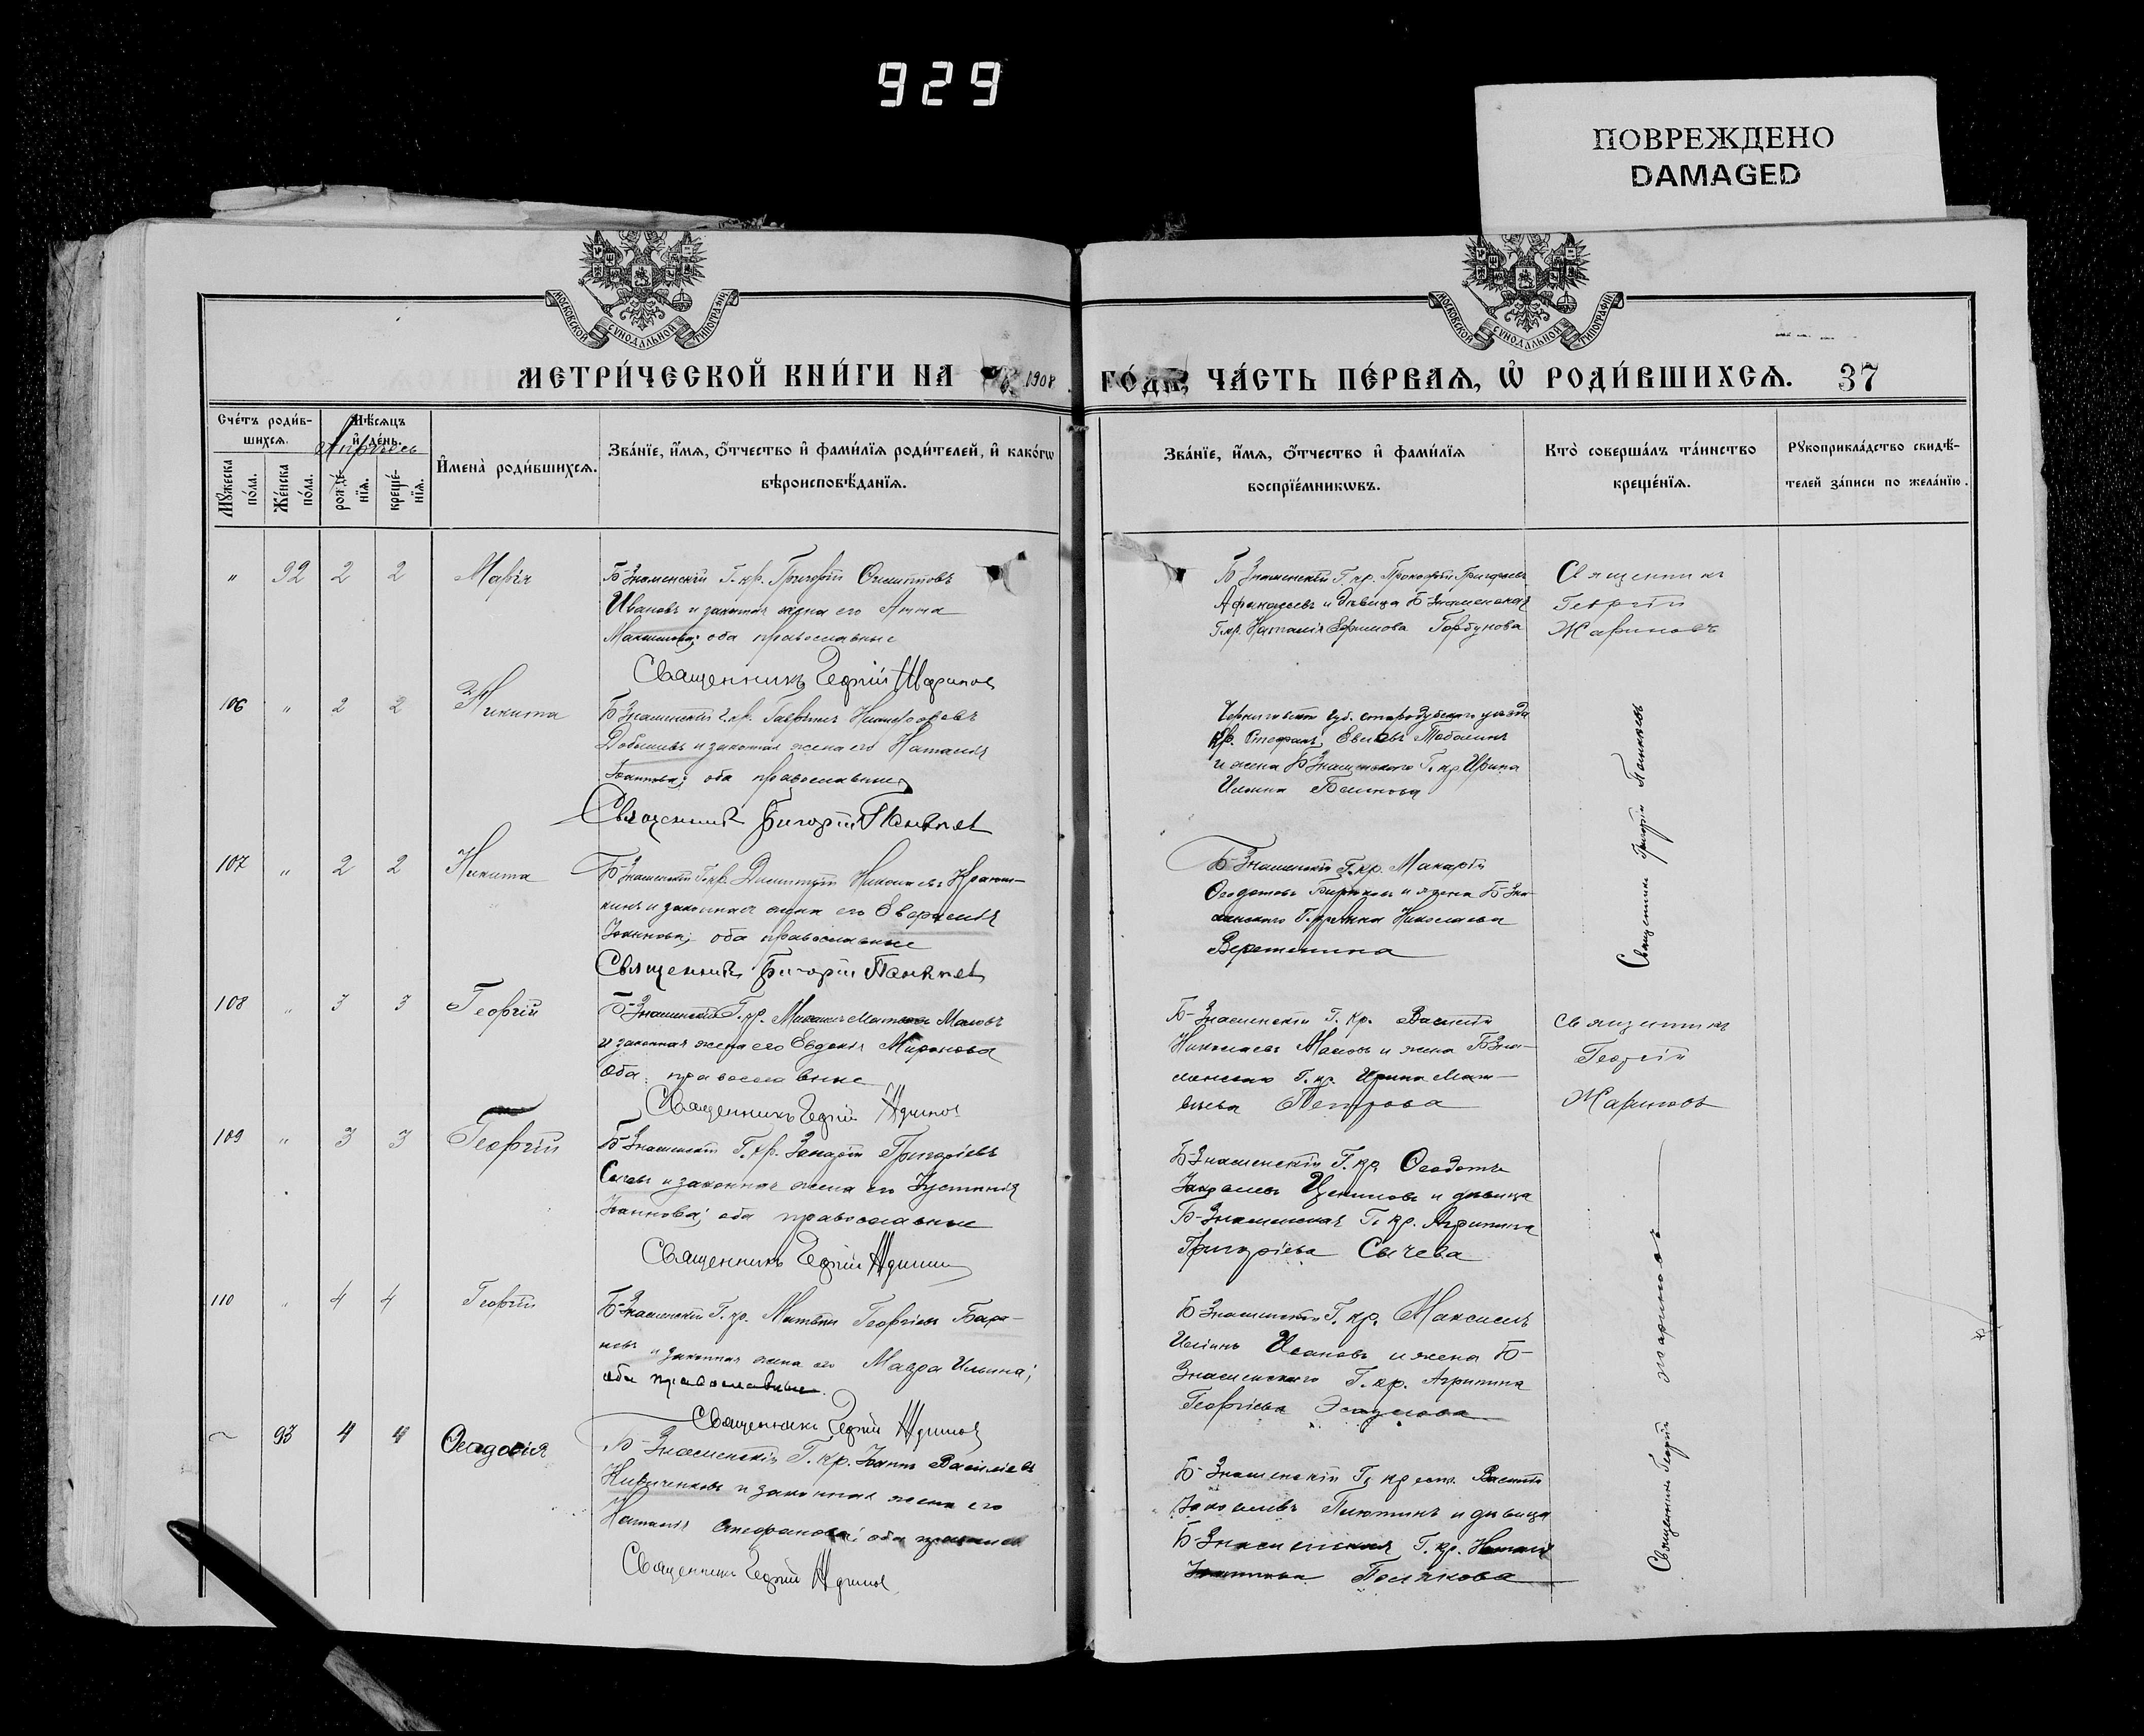 929
ПОВРЕЖДЕНО
DAMAGED
МОСКОВСКОЙ СѴНОДАЛЬНОЙ ТИПОГРАФІИ
МОСКОВСКОЙ СѴНОДАЛЬНОЙ ТИПОГРАФІИ
МЕТРИ́ЧЕСКОЙ КНИ́ГИ НА 1908 ГО́ДЪ, ЧА́СТЬ ПЕ́РВАѦ, Ѡ҆ РОДИ́ВШИХСѦ. 37
Сче́тъ роди́в-
шихсѧ.
Мѣ́сѧцъ
и҆ де́нь.
Апрѣль
Мꙋ́жеска по́ла.
Же́нска по́ла.
рожде́-
нїѧ.
креще́-
нїѧ.
И҆мена̀ роди́вшихсѧ.
Зва́нїе, и҆́мѧ, ѻ҆́тчество и҆ фами́лїѧ роди́телей, и҆ како́гѡ
вѣроисповѣ́данїѧ.
Зва́нїе, и҆́мѧ, ѻ҆́тчество и҆ фами́лїѧ
воспрїе́мникѡвъ.
Кто̀ соверша́лъ та́инство
креще́нїѧ.
Рꙋкоприкла́дство свидѣ́-
телей за́писи по жела́нїю.
" 92 2 2 Марія
Б-Знаменскій Г. кр. Григорій
Ивановъ и законная жена его Анна
оба православные
Священникъ Георгій Жариновъ
Б Знаменскій Г. кр. Прокофій Григорьевъ
Афанасьевъ и дѣвица Б-Знаменская
Г. кр. Наталія Ефимова Горбунова
Священникъ
Георгій
Жариновъ
106 " 2 2 Никита
Б Знаменскій Г. кр. Гавріилъ
и законная жена его Наталія
Іоаннова; оба православные
Священникъ Григорій
Черниговской губ. стародубскаго уѣзда
кр. Стефанъ
и жена Б Знаменскаго Г. кр. Ирина
Ильина
Священникъ Григорій
107 " 2 2 Никита
Б Знаменскій Г. кр. Димитрій Николаевъ
и законная жена его Евфимія
оба православные
Священникъ Григорій
Б-Знаменскій Г. кр. Макарій
Ѳеодотовъ Бирюковъ и жена Б-Зна-
менскаго Г. кр. Анна Николаева
108 " 3 3 Георгій
Б-Знаменскій Г. кр. Михаилъ Матвѣевъ
и законная жена его Евдокія Миронова
Оба православные
Священникъ Георгій Жариновъ
Б-Знаменскій Г. кр. Василій
Николаевъ и жена Б Зна-
менскаго Г. кр. Ирина Мат-
вѣева Петрова
Священникъ
Георгій
Жариновъ
109 " 3 3 Георгій
Б-Знаменскій Г. кр. Захарій Григоріевъ
и законная жена его Іустинія
Іоаннова; оба православные
Священникъ Георгій Жариновъ
Б Знаменскій Г. кр. Ѳеодотъ
и дѣвица
Б-Знаменская Г. кр. Агрипина
Григоріева Сычева
110 " 4 4 Георгій
Б-Знаменскій Г. кр. Матвѣй Георгіевъ Бара-
новъ и законная жена его Мавра Ильина;
оба православные.
Священникъ Георгій Жариновъ
Б Знаменскій Г. кр. Максимъ
Ильинъ Исаковъ и жена Б-
Знаменскаго Г. кр. Агрипина
Георгіева
93 4 4 Ѳеодосія
Б-Знаменскій Г. кр. Іоаннъ Василіевъ
Кириченковъ и законная жена его
Наталія Стефанова; оба
Священникъ Георгій Жариновъ
Б-Знаменскій Г. крест. Василій
и дѣвица
Б-Знаменская Г. кр. Наталія
Іоаннова Полякова
Священникъ Георгій Жариновъ